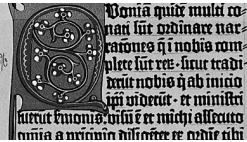 Uoniā quidē multi co-
nati sūt ordinare nar-
rationes q̄ ī nobis com-
plete sūt reꝝ · sicut tradi-
derūt nobis q ab inicio
ip̄i viderūt · et ministri
fuerūt s̄monis · visū ē et michi assecuto
om̄ia a prīcipio diligēter ex ordīe tibi